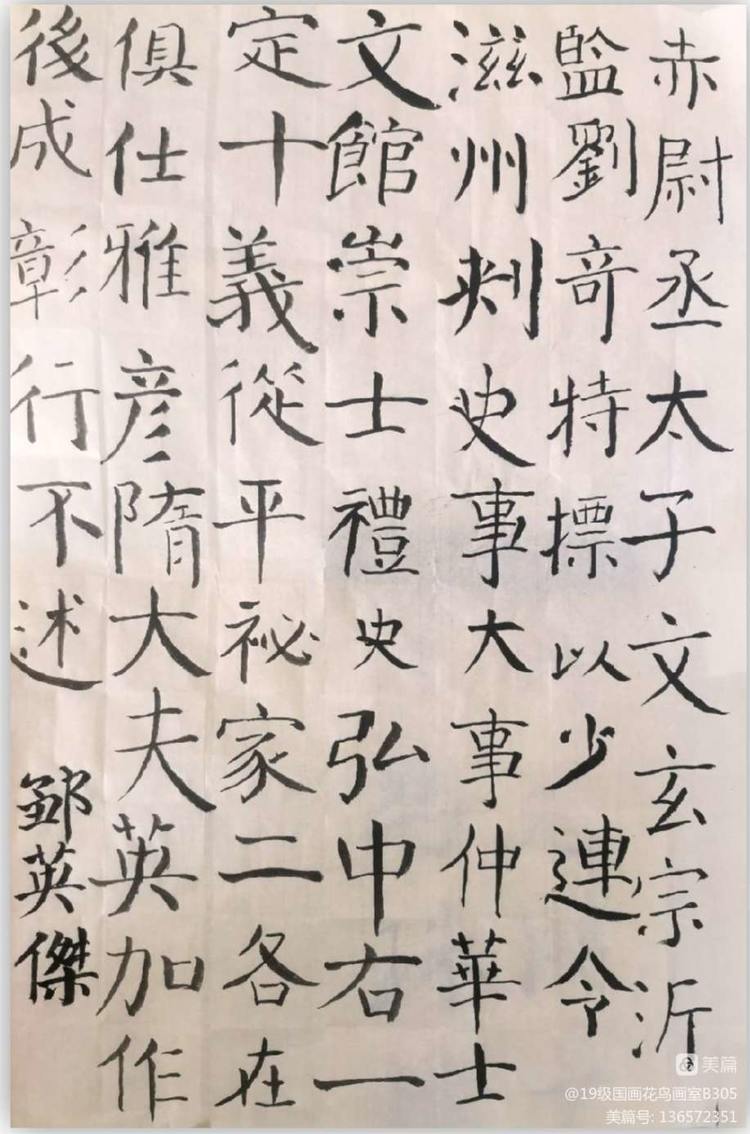 赤尉丞太子文玄宗沂
監劉竒特標以少連令
滋州刺史事大事仲華士
文館崇士禮史弘中右一
定十義從平祕家二各在
俱仕雅彦隋大夫英加作
後成彰行不述
鄒英傑
美篇
@19级国画花鸟画室B305
美篇号: 136572351